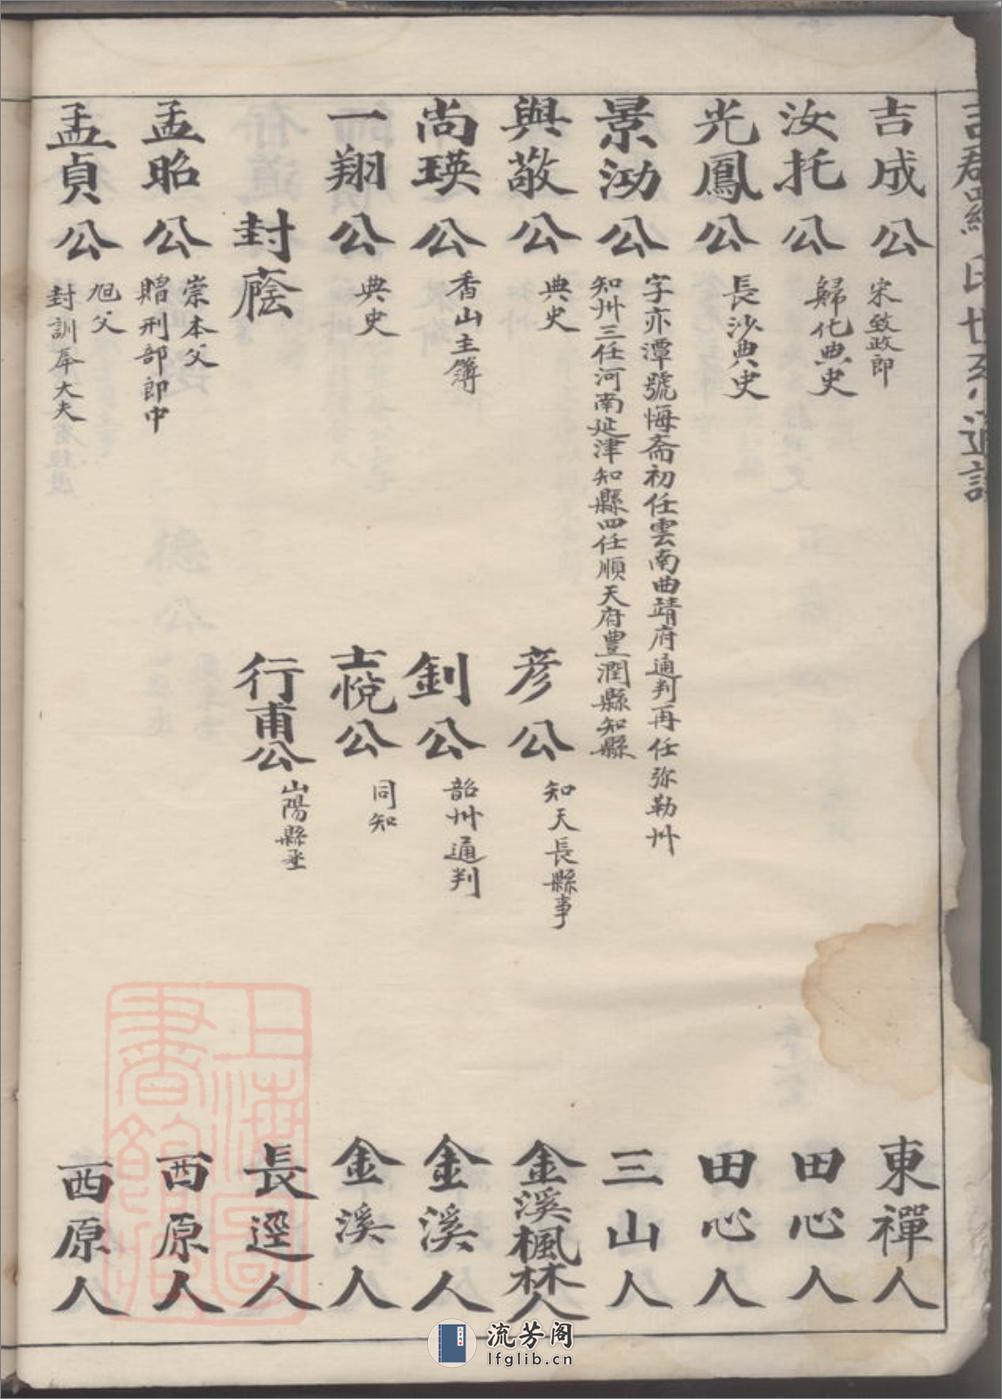 吉郡羅氏世系通譜
吉成公 宋致政郎 東禪人
汝托公 歸化典史 田心人
光鳳公 長沙典史 田心人
景泑公 字亦潭號悔齋初任雲南曲靖府通判再任弥勒州
知州三任河南延津知縣四任順天府豊潤縣知縣 三山人
與敬公 典史 彦公 知天長縣事 金溪楓林人
尚瑛公 香山主簿 釗公 韶州通判 金溪人
一翔公 典史 士悅公 同知 金溪人
封廕 行甫公 山陽縣丞 長逕人
孟昭公 崇本父
贈刑部郎中 西原人
孟貞公 旭父
封訓大夫 西原人
上海圖書館藏
流芳阁
lfglib.cn